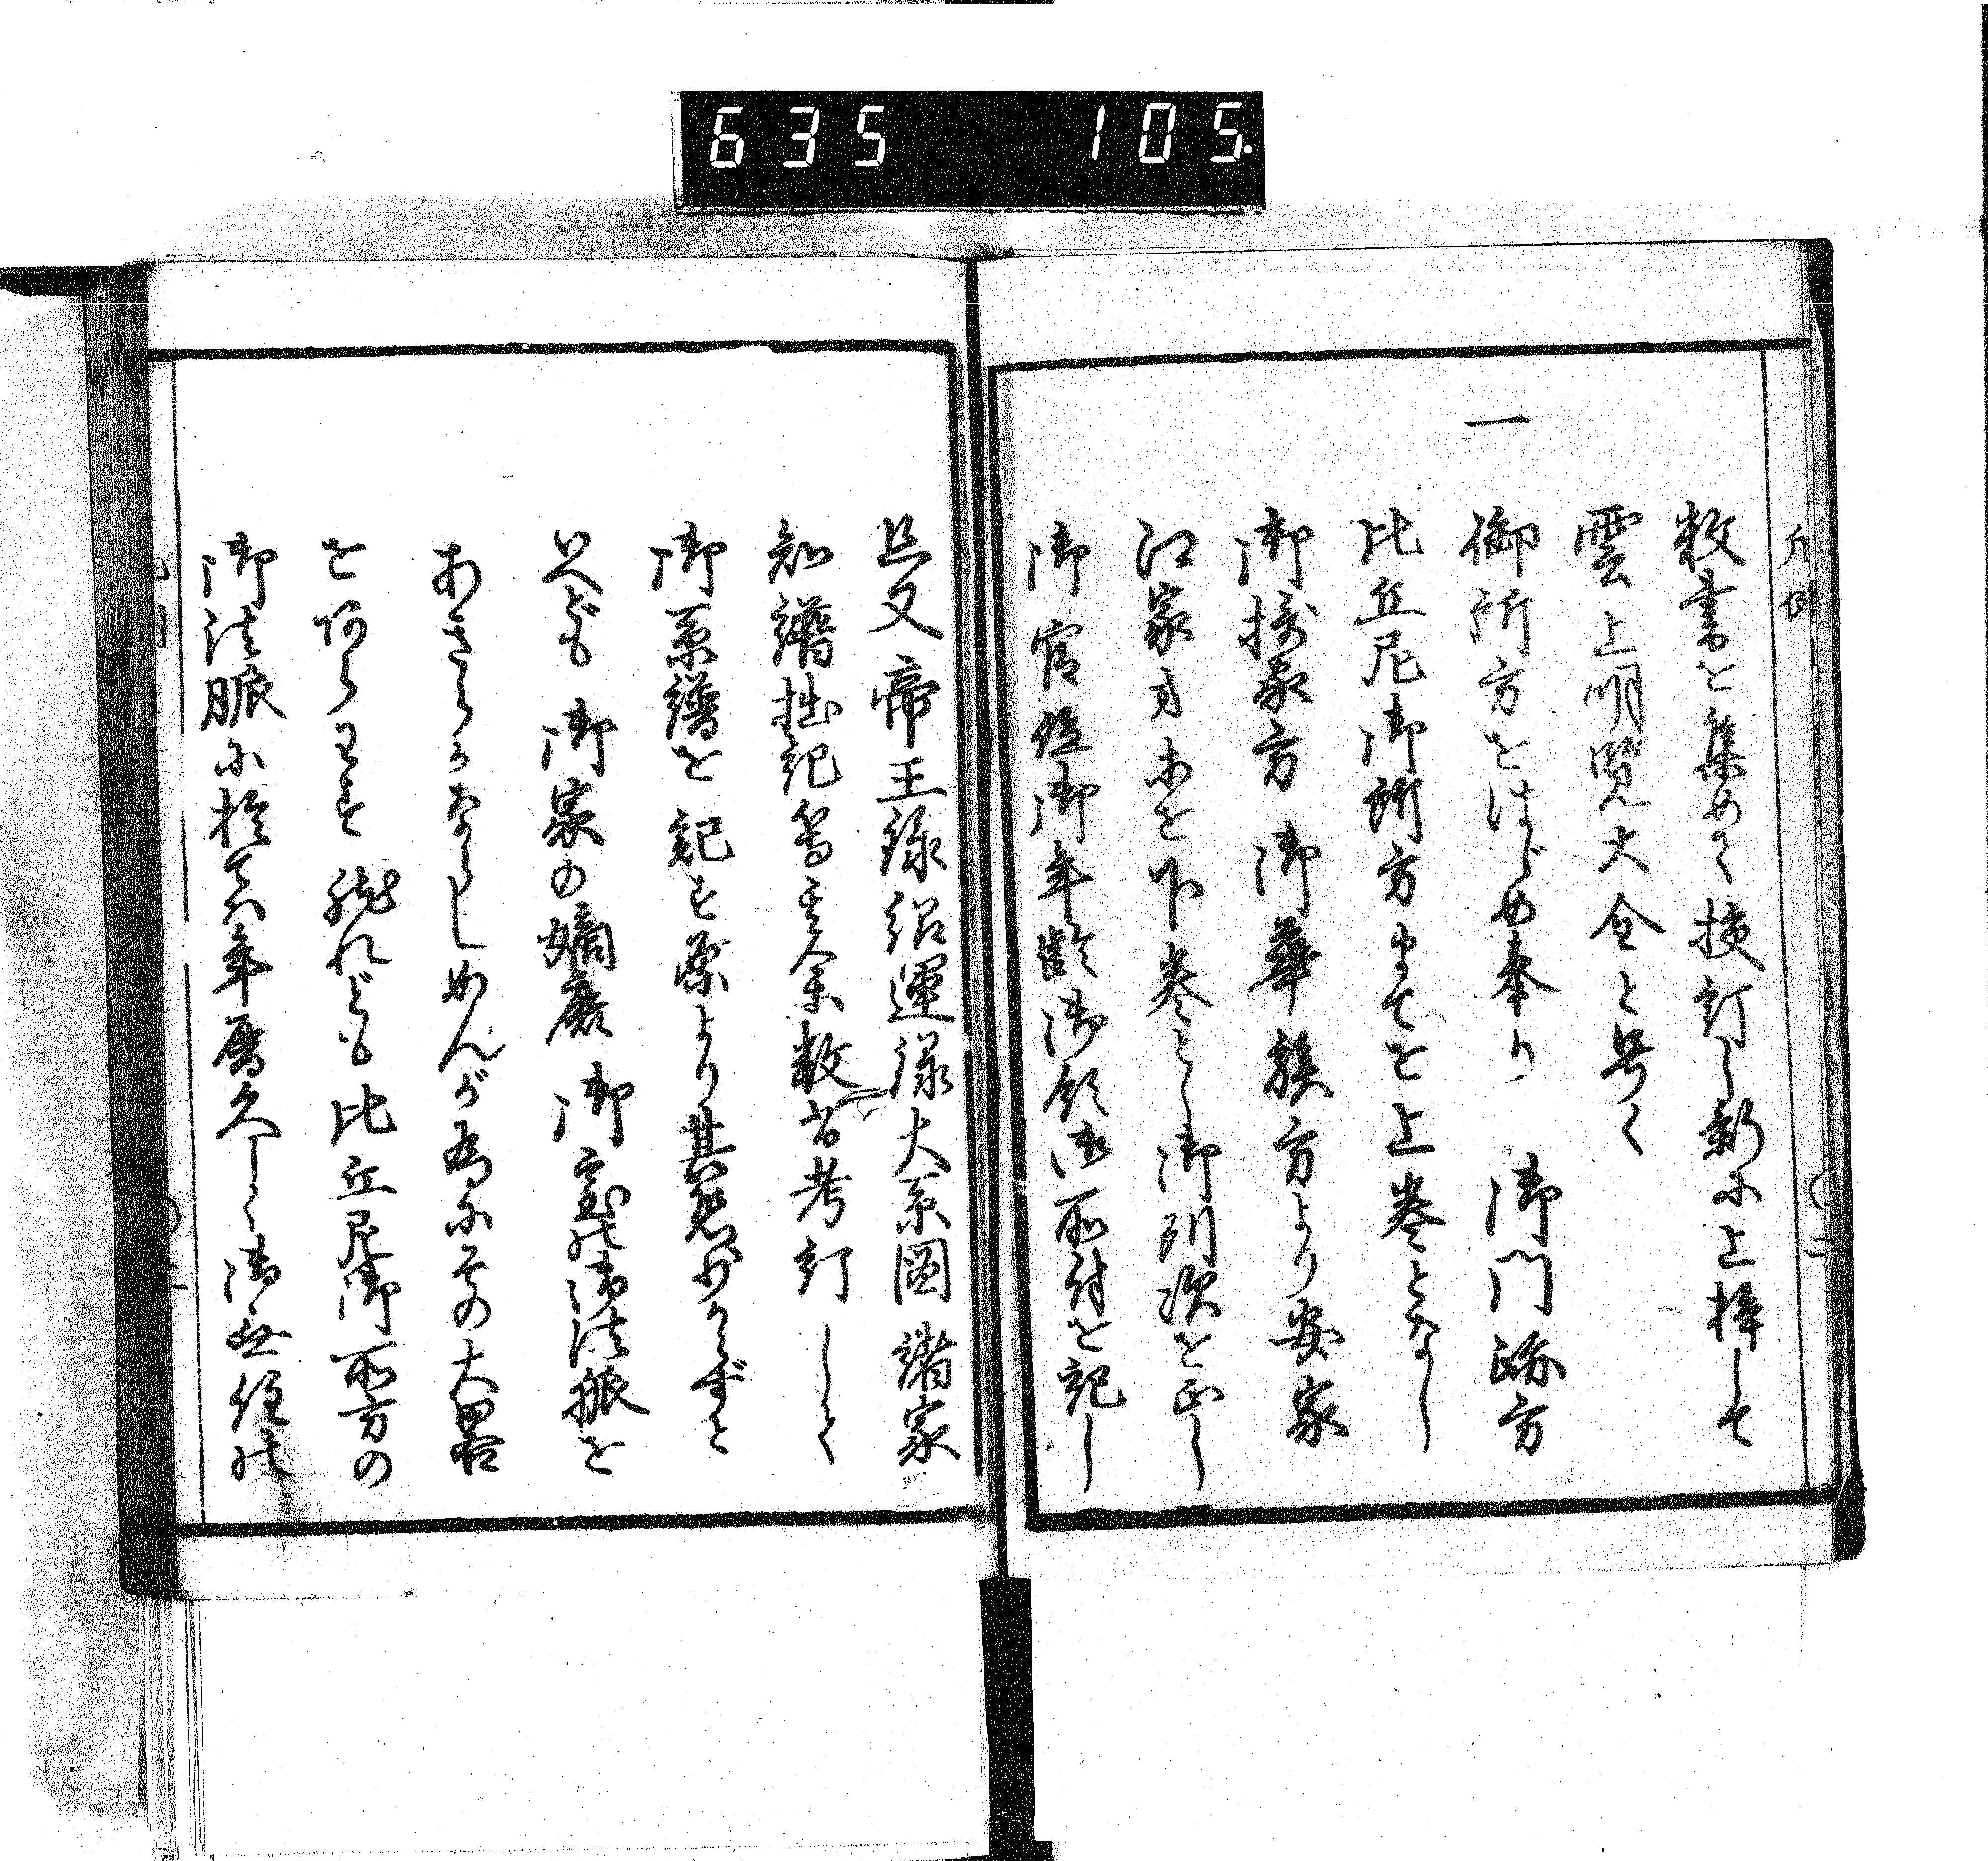 635 105.
凡例
数書を集めて校訂し新に上梓して
雲上明覧大全と号く
一
御所方をはじめ奉り 御門跡方
比丘尼御所方までを上巻となし
御摂家方 御華族方より安家
江家までを下巻とし御列次を正し
御官位御年齢御領御所付を記し
且又帝王録紹運録大系図諸家
知譜拙記等其余数書考訂して
御系譜を記す原より其憑少からずと
いへども 御家の嫡庶 御室の御法脈を
あきらかならしめんが為にその大畧
をあらはす 然れども比丘尼御所方の
御法脈に於ては年暦久しく御無住の